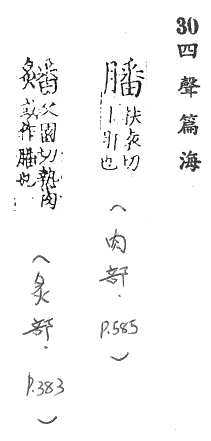 30 四聲篇海
膰 扶袁切
也
（肉部．P.585）
父園切熟肉
或作膰也
（炙部．P.383）